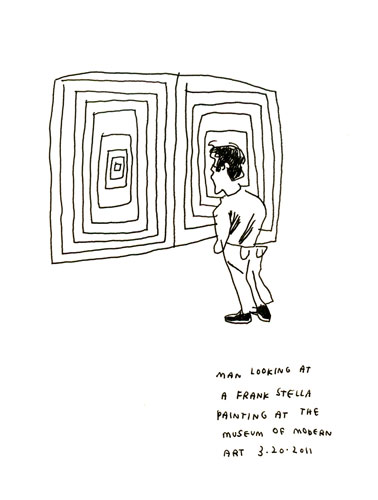 MAN LOOKING AT
A FRANK STELLA
PAINTING AT THE
MUSEUM OF MODERN
ART 3.20.2011